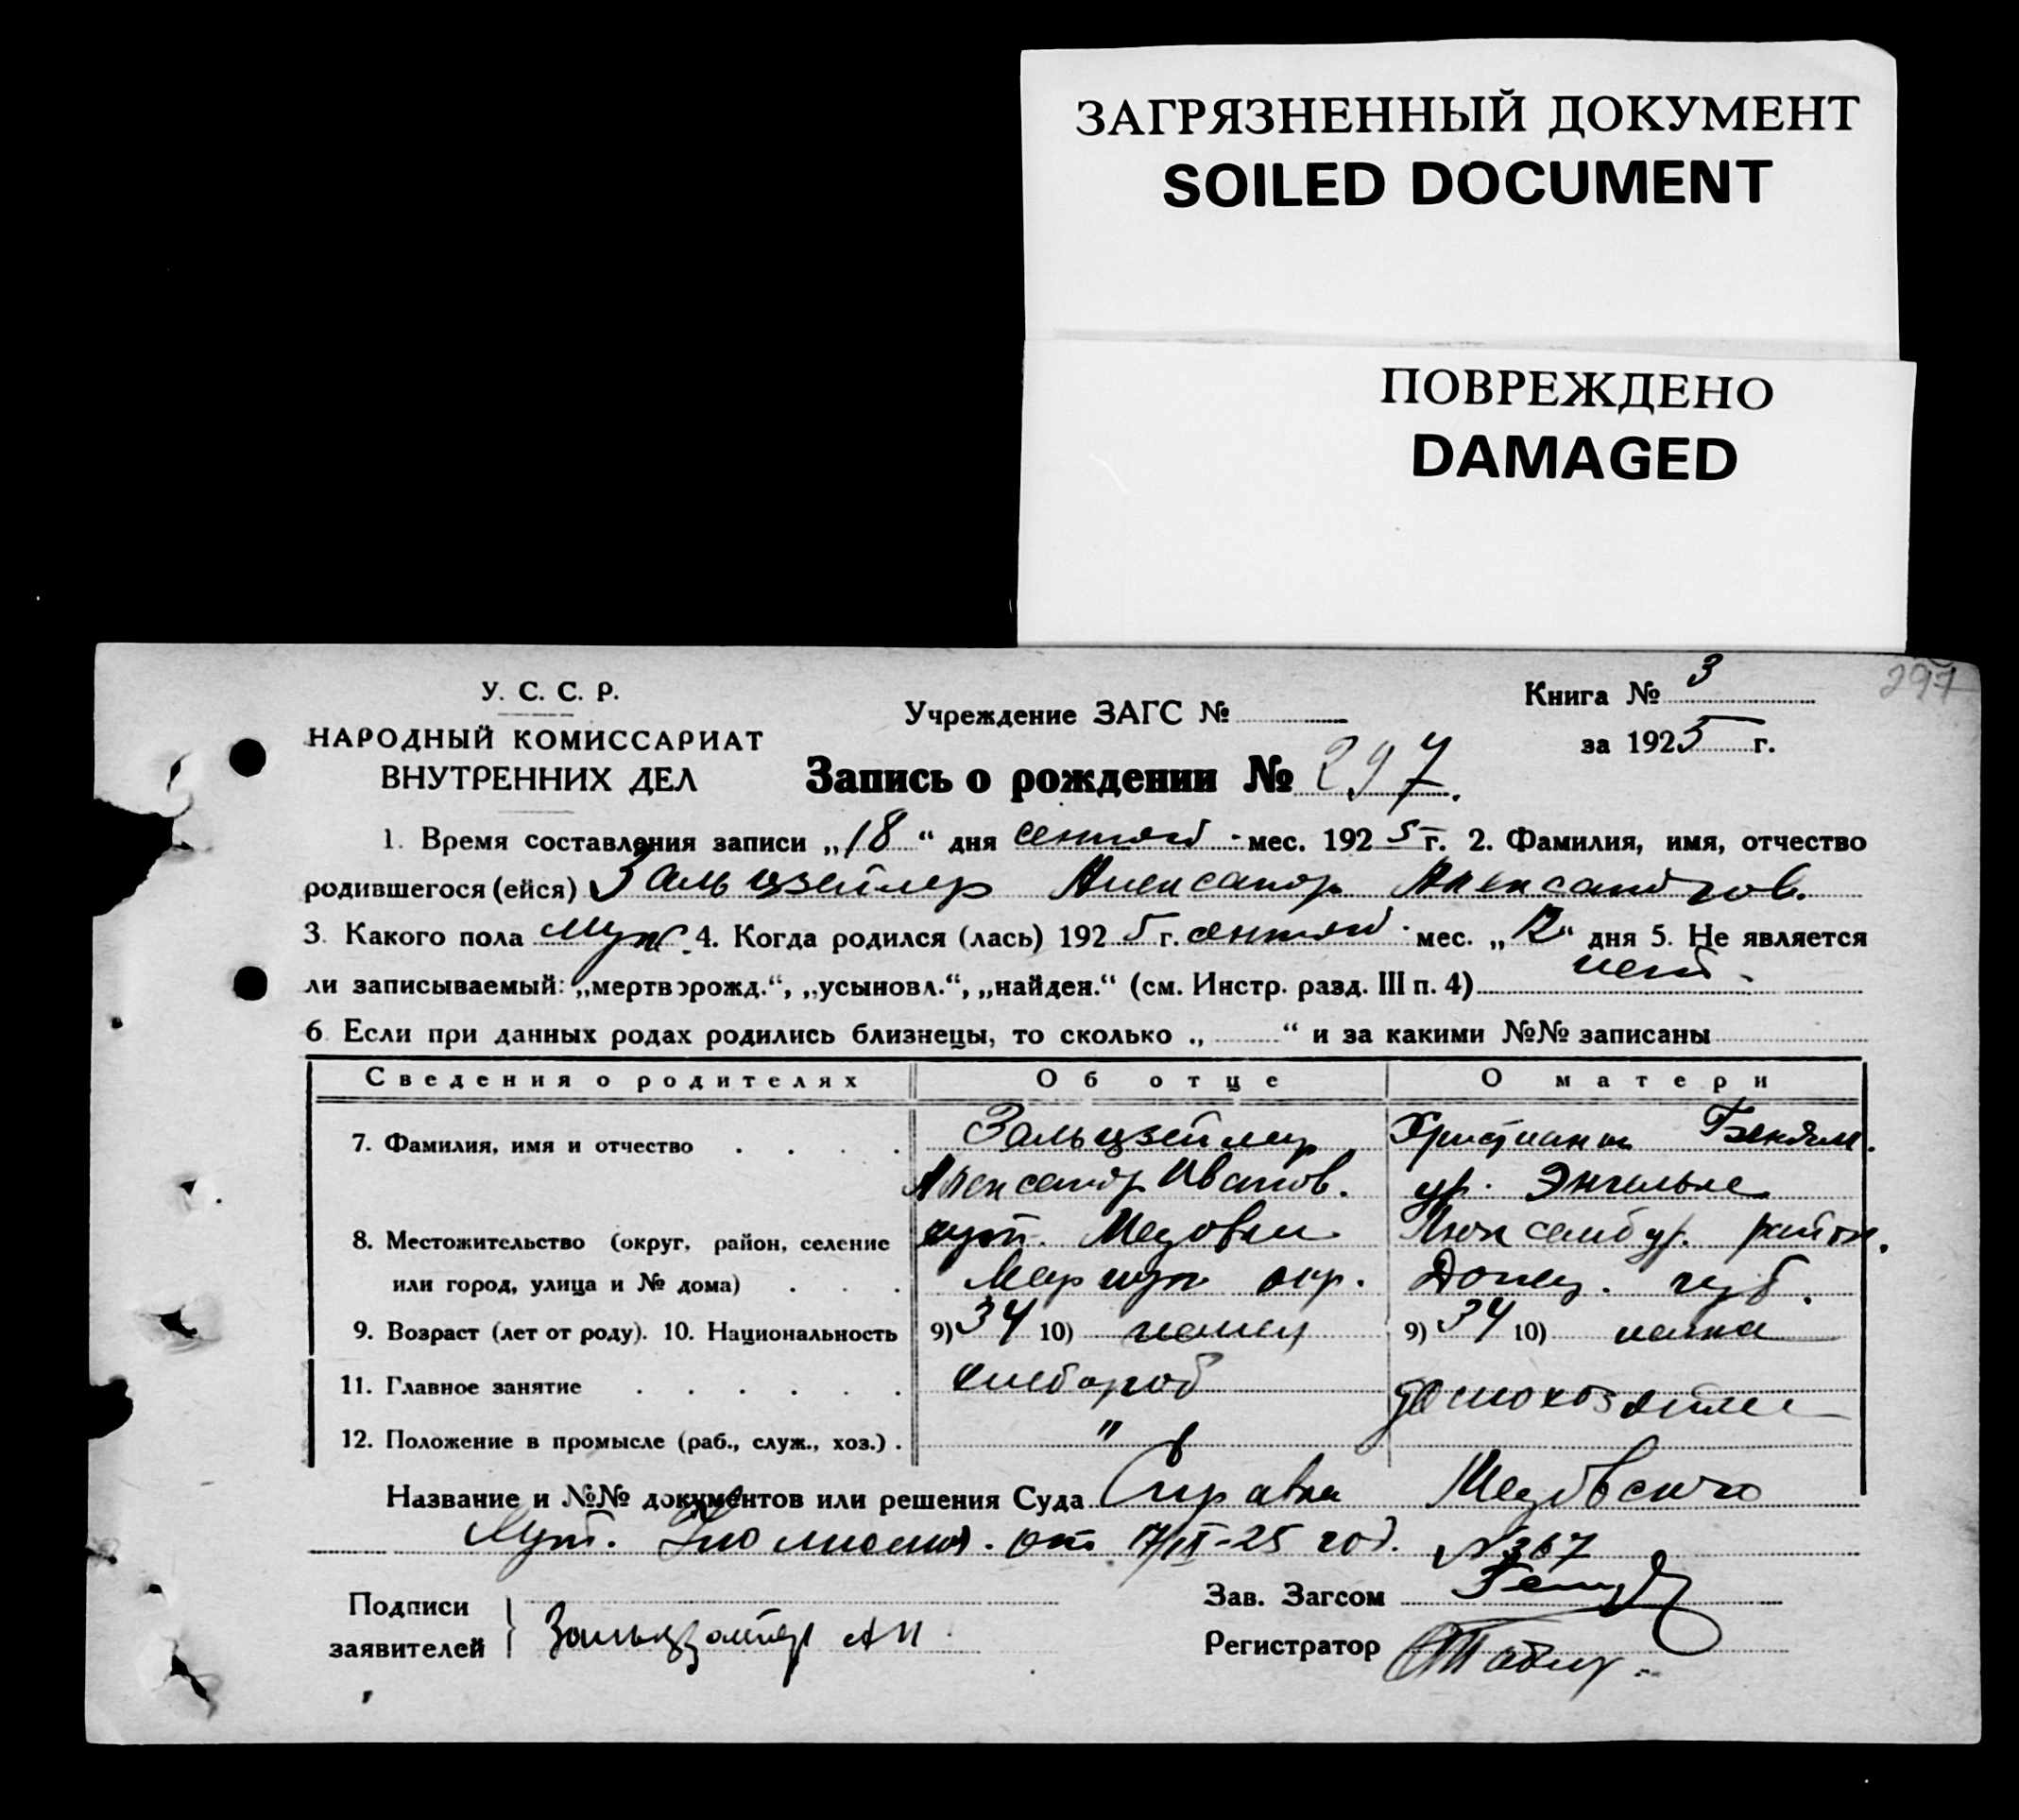 ЗАГРЯЗНЕННЫЙ ДОКУМЕНТ
SOILED DOCUMENT
ПОВРЕЖДЕНО
DAMAGED
297
У. С. С. Р.
НАРОДНЫЙ КОМИССАРИАТ
ВНУТРЕННИХ ДЕЛ
Учреждение ЗАГС №
Книга № 3
за 1925 г.
Запись о рождении № 297.
1. Время составления записи „18“ дня сентяб мес. 1925 г. 2. Фамилия, имя, отчество
родившегося (ейся) Зальцзейлер Александр Александров.
3. Какого пола муж. 4. Когда родился (лась) 1925 г. сентяб мес. „12“ дня 5. Не является
ли записываемый: „мертворожд.“, „усыновл.“, „найден.“ (см. Инстр. разд. III п. 4) нет
6. Если при данных родах родились близнецы, то сколько „ “ и за какими №№ записаны
Сведения о родителях Об отце О матери
7. Фамилия, имя и отчество Зальцзейлер Христиана
Александр Иванов. ур.
8. Местожительство (округ, район, селение Люксембур. район.
или город, улица и № дома) Мариуп окр. Донец. губ.
9. Возраст (лет от роду). 10. Национальность 9) 34 10) немец 9) 34 10) немка
11. Главное занятие хлебороб домохозяйка
12. Положение в промысле (раб., служ., хоз.) "
Название и №№ документов или решения Суда Справка
от 17/IX-25 год. №367
Подписи
заявителей
Зав. Загсом
Регистратор